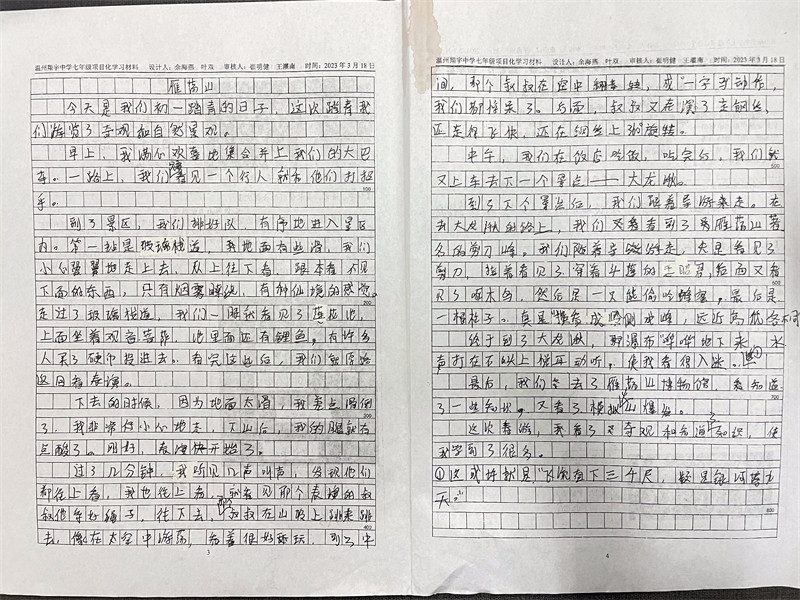 温州翔宇中学七年级项目化学习材料 设计人：余海燕 叶双 审核人：崔明健 王灌南 时间：2023年3月18日
雁荡山
今天是我们初一踏青的日子，这次踏青我
们游览了奇观和自然景观。
早上，我满心欢喜地集合并上我们的大巴
车。一路上，我们看见一个行人就和他们打招
100
手。
到了景区，我们排好队，有序地进入景区
内。第一站是玻璃栈道，我地面有些滑，我们
小心翼翼地走上去，从上往下看，跟本看不见
下面的东西，只有烟雾缭绕，有种仙境的感觉。
200
走过了玻璃栈道，我们一眼就看见了莲花池，
上面坐着观音菩萨，池里面还有鲤鱼，有许多
人买了硬币投进去。看完这些后，我们就原路
返回看表演。
300
下去的时候，因为地面太滑，我差点滑倒
了，我非常小心地走，下山后，我的腿就有
点酸了。刚好，表演快开始了。
过了几分钟，我听见几声叫声，发现他们
都往上看，我也往上看，就看见那个表演的叔
叔他系好绳子，往下去，叔叔在山路上跳来跳
400
去，像在太空中漫荡，看着很好玩，到了中
3
温州翔宇中学七年级项目化学习材料 设计人：余海燕 叶双 审核人：崔明健 王灌南 时间：2023年3月18日
间，那个叔叔在空中翻跟头，成“一字”动作，
我们都惊呆了。后面，叔叔又表演了走钢丝，
还在丝上旋转。
中午，我们在饭店吃饭，吃完后，我们就
500
又上车去下一个景点——大龙湫。
到了下个景点后，我们跟着导游来走。在
去大龙湫的路上，我们又看到了雁荡山著
名的剪刀峰。我们跟着导游走，先是看见了
剪刀，接着看见了穿着的，后面又看
600
见了啄木鸟，然后是一只熊偷吃蜂蜜，最后是
一根柱子。真是“横看成岭侧成峰，远近高低各不同”
终于到了大龙湫，那瀑布“哗哗”地下来，水
声打在石头上悦耳动听，使我看得入迷。①
最后，我们去了雁荡山博物馆，我知道
700
了一些知识，又看了模拟火山爆发。
这次春游，我看了奇观和知识，使
我学到了很多。
①这或许就是“飞流直下三千尺，疑是银河落九
天。”
800
4